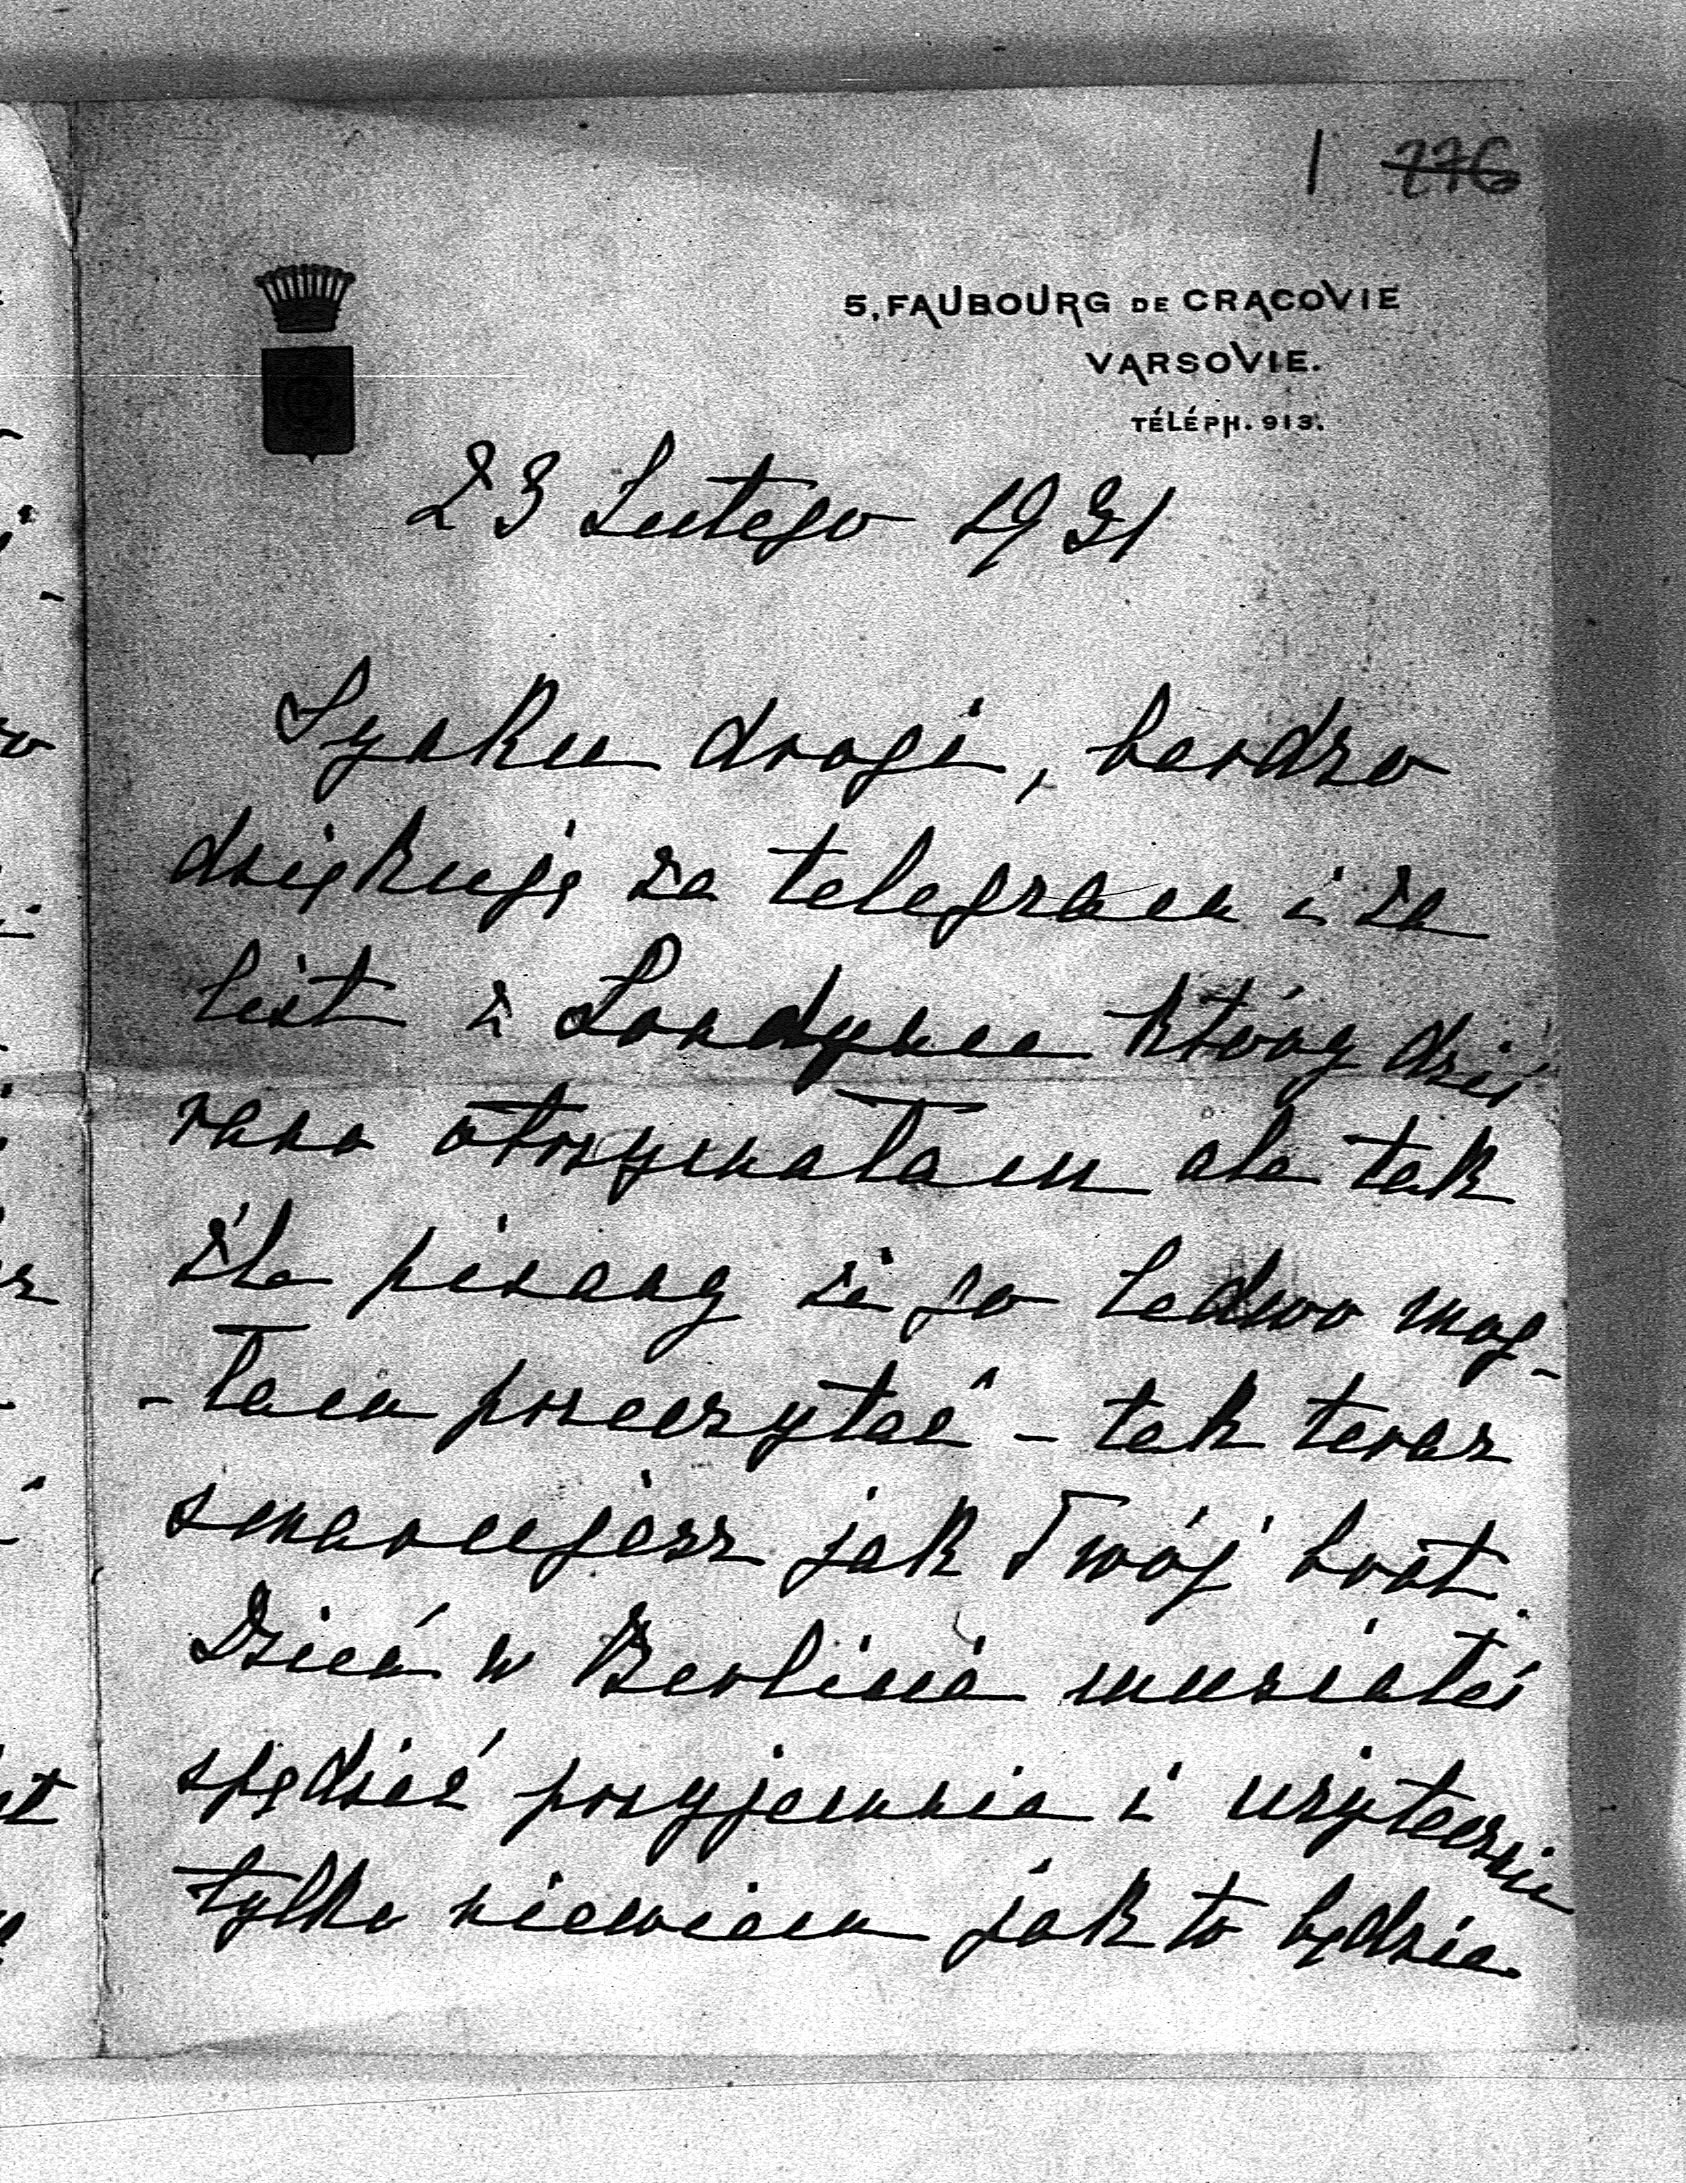 1 276
5, FAUBOURG DE CRACOVIE
VARSOVIE.
TÉLÉPH. 913.
23 Lutego 1931
Synku drogi, bardzo
dziękuję za telegram i za
list z Londynu który dziś
rano otrzymałam ale tak
źle pisany że go ledwo mog-
-łam przeczytać - tak teraz
smarujesz jak Twój brat.
Dzień w Berlinie musiałeś
spędzić przyjemnie i użytecznie
tylko niewiem jak to będzie